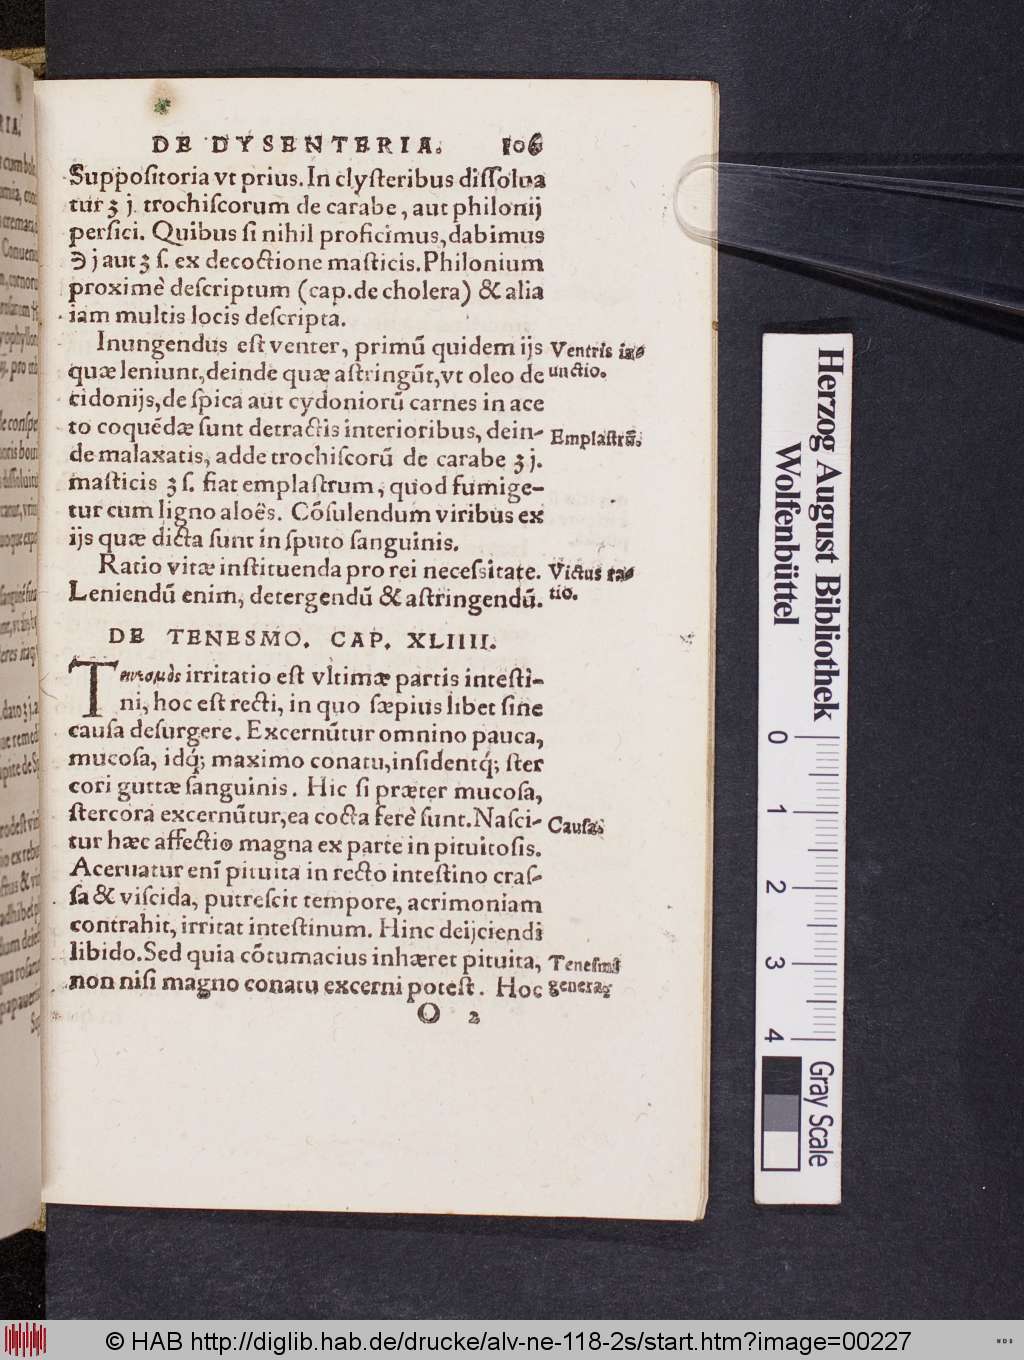 DE DYSENTERIA. 106
Suppoſitoria vt prius. In clyſteribus diſſolua
tur ʒ j. trochiſcorum de carabe, aut philonij
perſici. Quibus ſi nihil proficimus, dabimus
℈ j aut ʒ ſ. ex decoctione maſticis. Philonium
proximè deſcriptum (cap. de cholera) & alia
iam multis locis deſcripta.
Inungendus eſt venter, primũ quidem ijs
quæ leniunt, deinde quæ aſtringũt, vt oleo de
cidonijs, de ſpica aut cydoniorũ carnes in ace
to coquẽdæ ſunt detractis interioribus, dein-
de malaxatis, adde trochiſcorũ de carabe ʒ j.
maſticis ʒ ſ. fiat emplaſtrum, quod fumige-
tur cum ligno aloës. Cõſulendum viribus ex
ijs quæ dicta ſunt in ſputo ſanguinis.
Ratio vitæ inſtituenda pro rei neceſsitate.
Leniendũ enim, detergendũ & aſtringendũ.
Ventris in-
unctio.
Emplaſtrũ.
Victus ra-
tio.
DE TENESMO. CAP. XLIIII.
Τεινεσμὸς irritatio eſt vltimæ partis inteſti-
ni, hoc eſt recti, in quo ſæpius libet ſine
cauſa deſurgere. Excernũtur omnino pauca,
mucoſa, idq́; maximo conatu, inſidentq́; ſter
cori guttæ ſanguinis. Hic ſi præter mucoſa,
ſtercora excernũtur, ea cocta ferè ſunt. Naſci-
tur hæc affectio magna ex parte in pituitoſis.
Aceruatur enĩ pituita in recto inteſtino craſ-
ſa & viſcida, putreſcit tempore, acrimoniam
contrahit, irritat inteſtinum. Hinc deijciendi
libido. Sed quia cõtumacius inhæret pituita,
non niſi magno conatu excerni poteſt. Hoc
Cauſa.
Teneſmi
genera.
O 2
Herzog August Bibliothek
Wolfenbüttel
0 1 2 3 4
Gray Scale
© HAB http://diglib.hab.de/drucke/alv-ne-118-2s/start.htm?image=00227